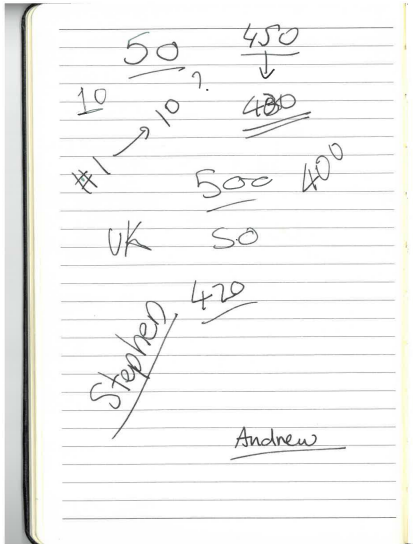 50 450
10 10 ? 480
#1
500 400
UK 50
420
Stephen
Andrew